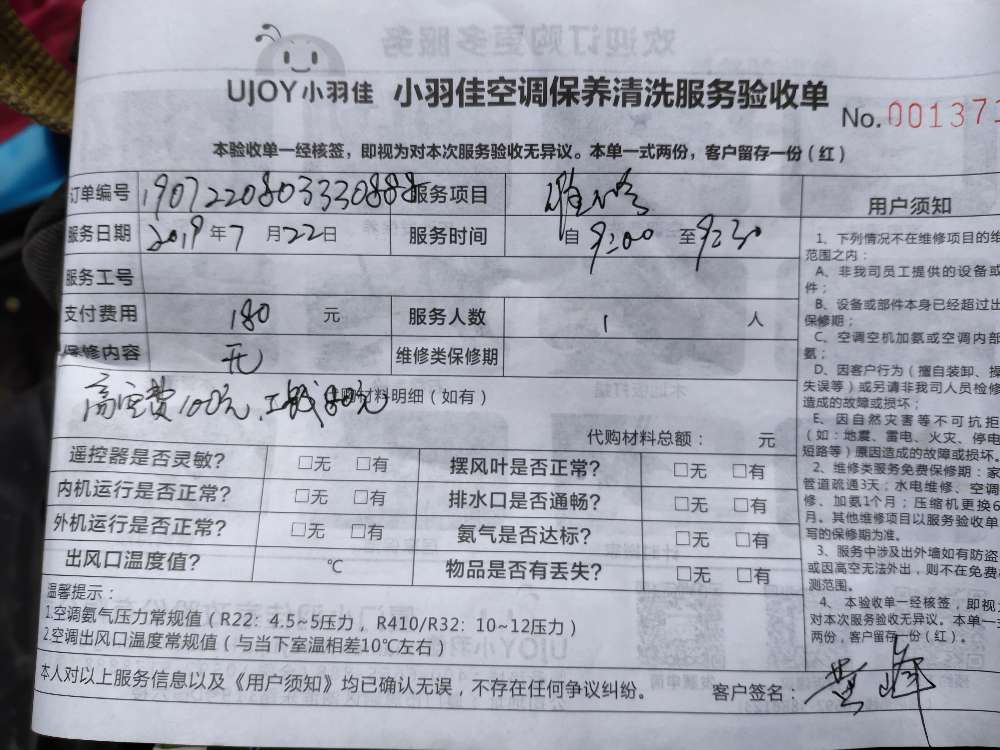 UJOY小羽佳 小羽佳空调保养清洗服务验收单
No.001371
本验收单一经核签，即视为对本次服务验收无异议。本单一式两份，客户留存一份（红）
订单编号 1907220803330888 服务项目
服务日期 2019年7月22日 服务时间 自9:00至9:30
服务工号
支付费用 180 元 服务人数 1 人
保修内容 无 维修类保修期
高空费100元， 80元
代购材料明细（如有）
代购材料总额： 元
遥控器是否灵敏？ □无 □有 摆风叶是否正常？ □无 □有
内机运行是否正常？ □无 □有 排水口是否通畅？ □无 □有
外机运行是否正常？ □无 □有 氨气是否达标？ □无 □有
出风口温度值？ ℃ 物品是否有丢失？ □无 □有
温馨提示：
1.空调氨气压力常规值（R22：4.5~5压力，R410/R32：10~12压力）
2.空调出风口温度常规值（与当下室温相差10℃左右）
本人对以上服务信息以及《用户须知》均已确认无误，不存在任何争议纠纷。 客户签名：
用户须知
1、下列情况不在维修项目的维
范围之内：
A、非我司员工提供的设备或
件；
B、设备或部件本身已经超过出
保修期；
C、空调空机加氨或空调内部
氨；
D、因客户行为（擅自装卸、操
失误等）或另请非我司人员检修
造成的故障或损坏；
E、因自然灾害等不可抗拒
（如：地震、雷电、火灾、停电
短路等）原因造成的故障或损坏。
2、维修类服务免费保修期：家
管道疏通3天；水电维修、空调
修、加氨1个月；压缩机更换6
月。其他维修项目以服务验收单
写的保修期为准。
3、服务中涉及出外墙如有防盗
或因高空无法外出，则不在免费
测范围。
4、本验收单一经核签，即视
对本次服务验收无异议。本单一式
两份，客户留存一份（红）。